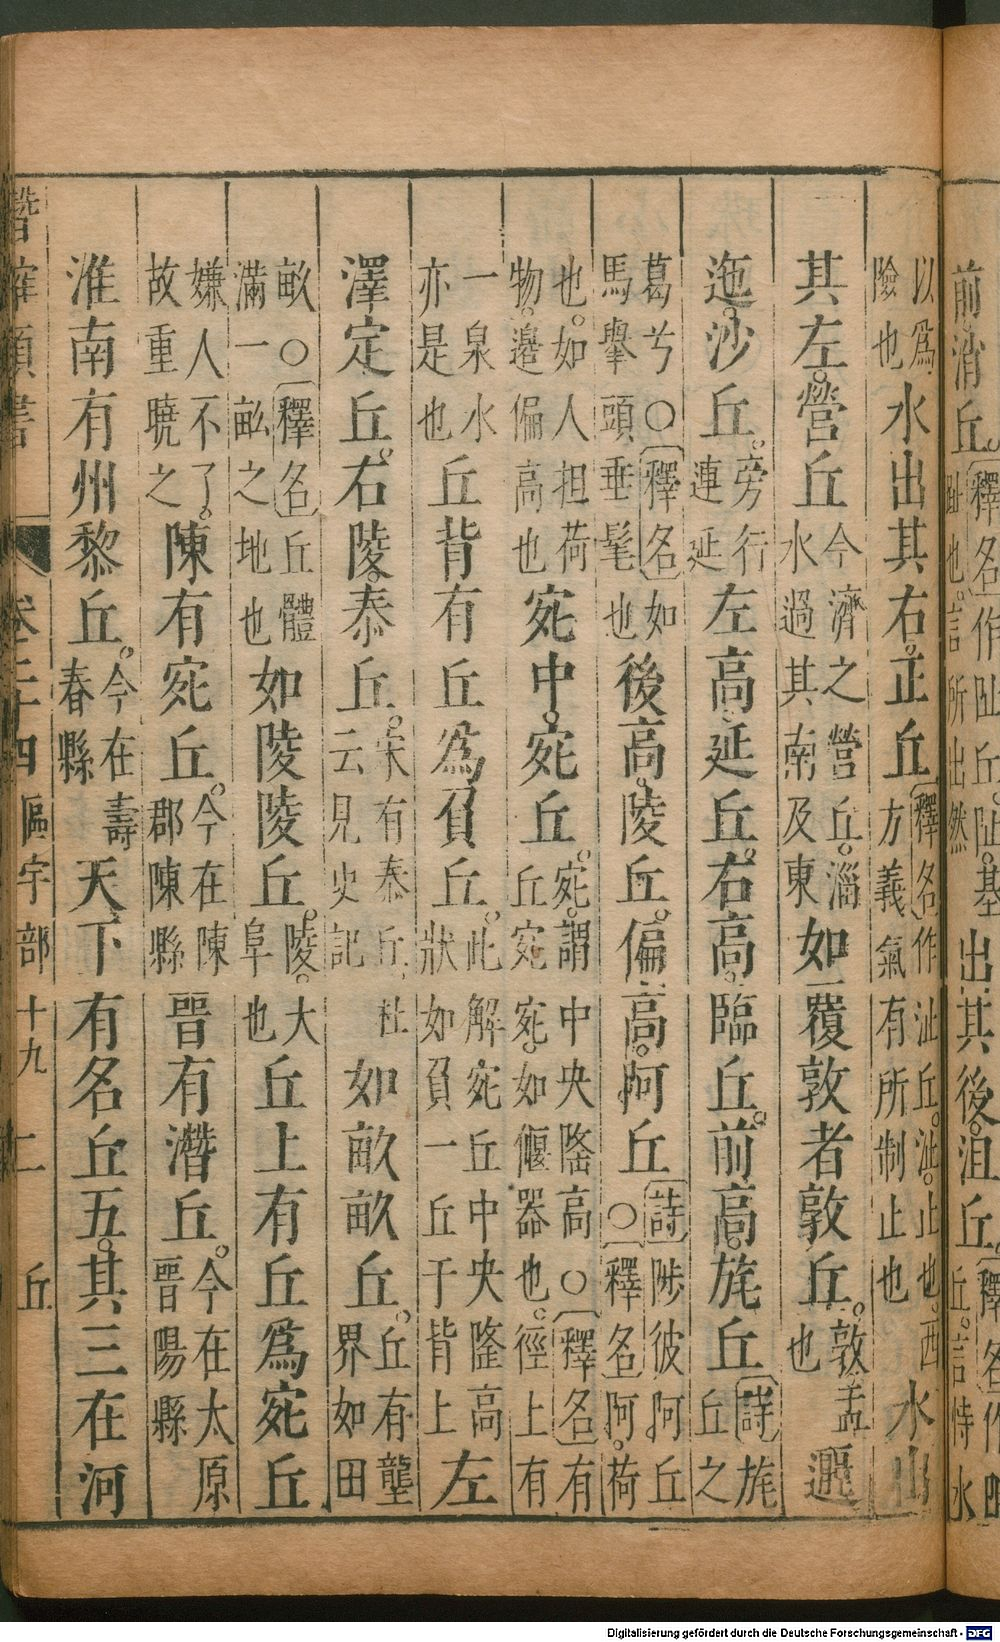 前消丘。釋名作阯丘。阯。基趾也。言所出然出其後沮丘。釋名作
丘。言恃水
以爲險也水出其右。正丘釋名作沚丘。沚。止也。西方義氣有所制止也水出
其左。營丘今濟之營丘。淄水過其南及東如覆敦者敦丘。敦。盂也邐
迤。沙丘。旁行連延左高延丘。右高。臨丘。前高。旄丘詩旄丘之
葛兮○釋名如馬舉頭垂髦也後高。陵丘。偏高。阿丘詩陟彼阿丘○釋名阿。荷
也。如人担荷物。邊偏高也宛中。宛丘。宛。謂中央隆高○釋名有丘宛宛。如偃器也。徑上有
一泉水亦是也丘背有丘爲負丘。此解宛丘中央隆高狀如負一丘于背上左
澤定丘。右陵。泰丘。宋有泰丘。杜云見史記如畝畝丘。丘有壟界如田
畝○釋名丘體滿一畝之地也如陵陵丘。陵。大阜也丘上有丘爲宛丘
嫌人不了。故重曉之陳有宛丘。今在陳郡陳縣晉有潛丘。今在太原晉陽縣
淮南有州黎丘。今在壽春縣天下有名丘五。其三在河
潛確類書 卷二十四 區宇部 十九 二 丘
Digitalisierung gefördert durch die Deutsche Forschungsgemeinschaft - DFG